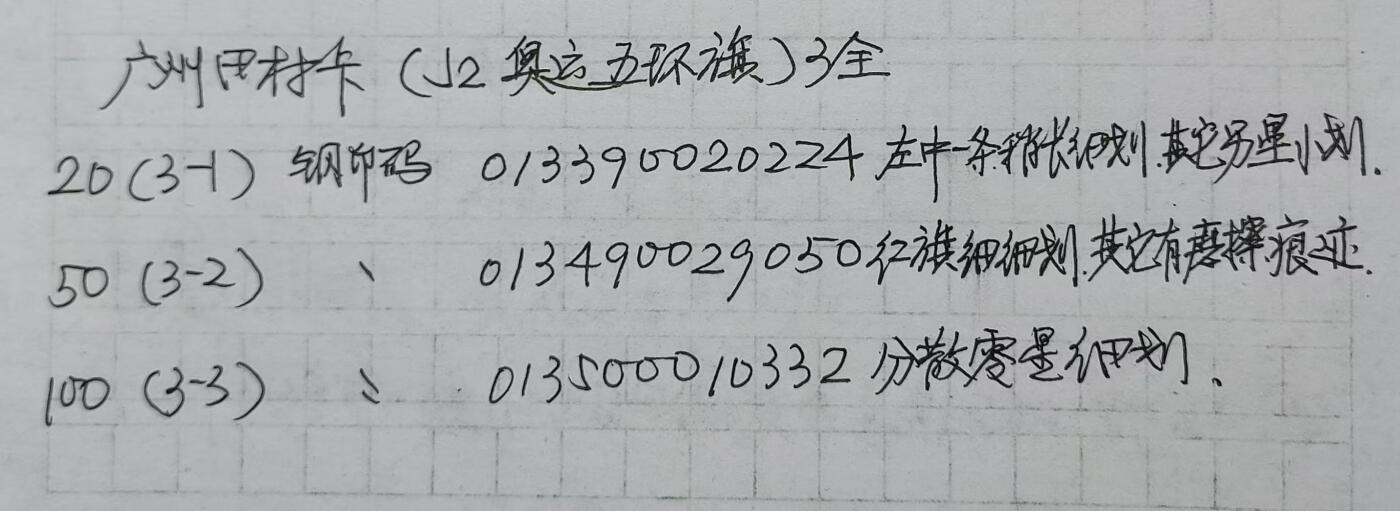 广州田村卡（J2奥运五环旗）3全
20（3-1）钢印码 013390020224 左中一条稍长细划.其它另星小划.
50（3-2） 、 013490029050 红旗细细划.其它有磨擦痕迹.
100（3-3） 、 013500010332 分散零星细划.